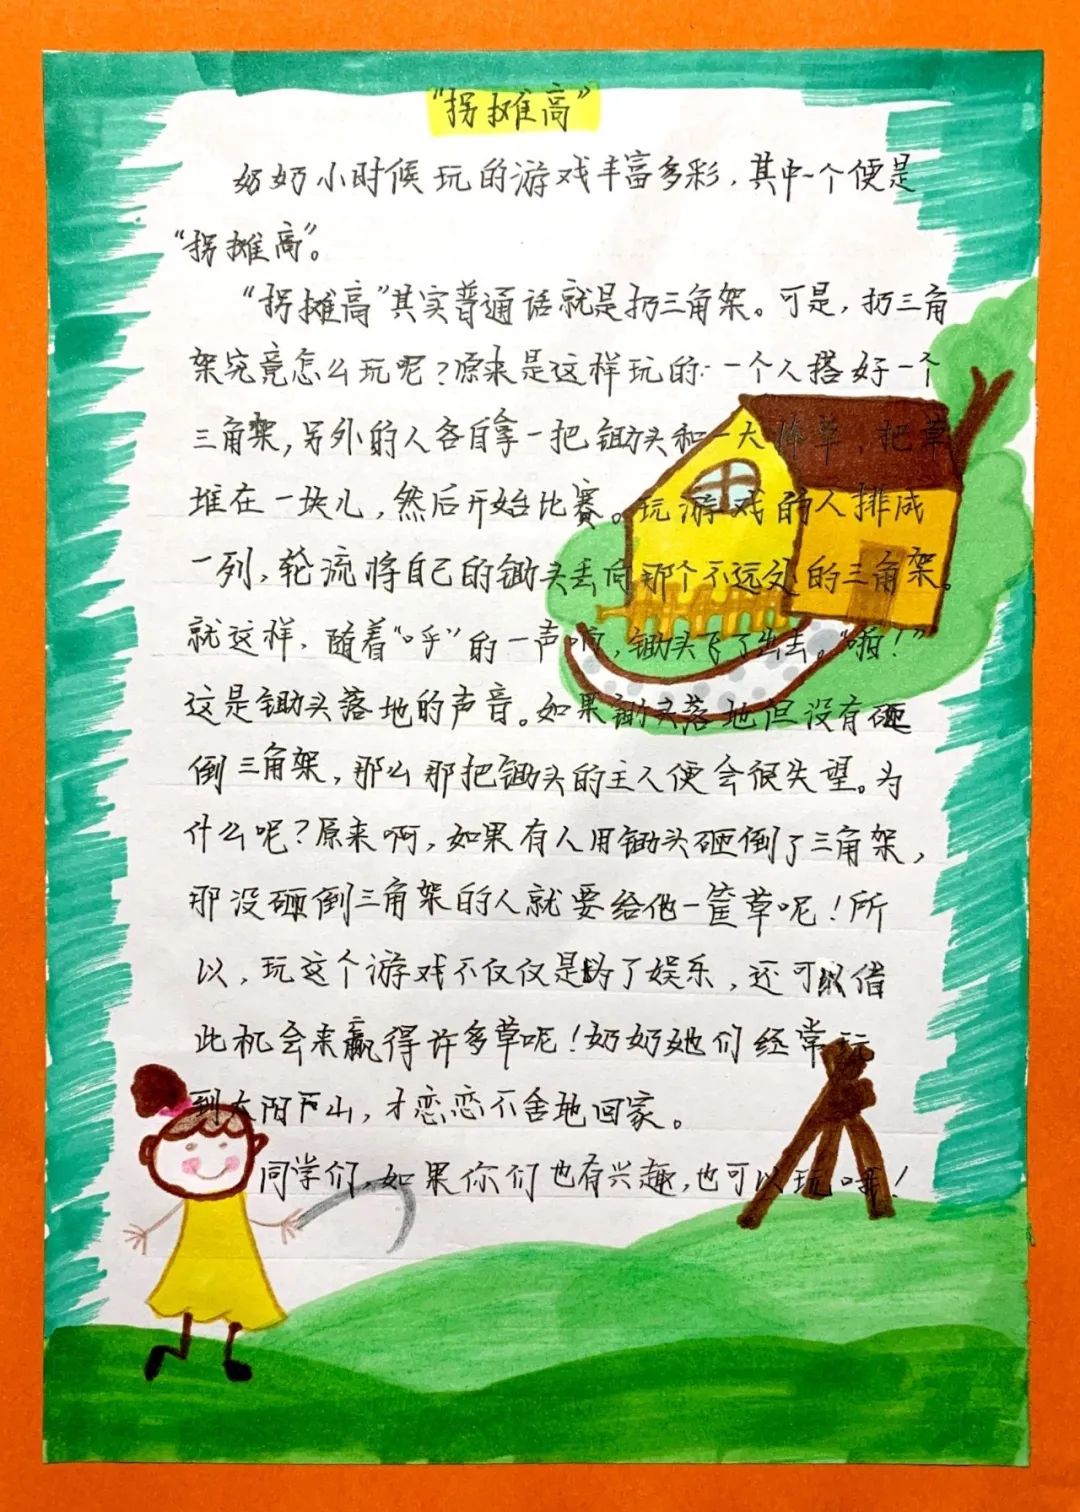 “拐摊高”
奶奶小时候玩的游戏丰富多彩，其中一个便是
“拐摊高”。
“拐摊高”其实普通话就是扔三角架。可是，扔三角
架究竟怎么玩呢？原来是这样玩的：一个人搭好一个
三角架，另外的人各自拿一把锄头和一大捧草，把草
堆在一块儿，然后开始比赛。玩游戏的人排成
一列，轮流将自己的锄头丢向那个不远处的三角架。
就这样，随着“呼”的一声响，锄头飞了出去。“啪！”
这是锄头落地的声音。如果锄头落地但没有砸
倒三角架，那么那把锄头的主人便会很失望。为
什么呢？原来啊，如果有人用锄头砸倒了三角架，
那没砸倒三角架的人就要给他一筐草呢！所
以，玩这个游戏不仅仅是为了娱乐，还可以借
此机会来赢得许多草呢！奶奶她们经常玩
到太阳下山，才恋恋不舍地回家。
同学们，如果你们也有兴趣，也可以玩哦！